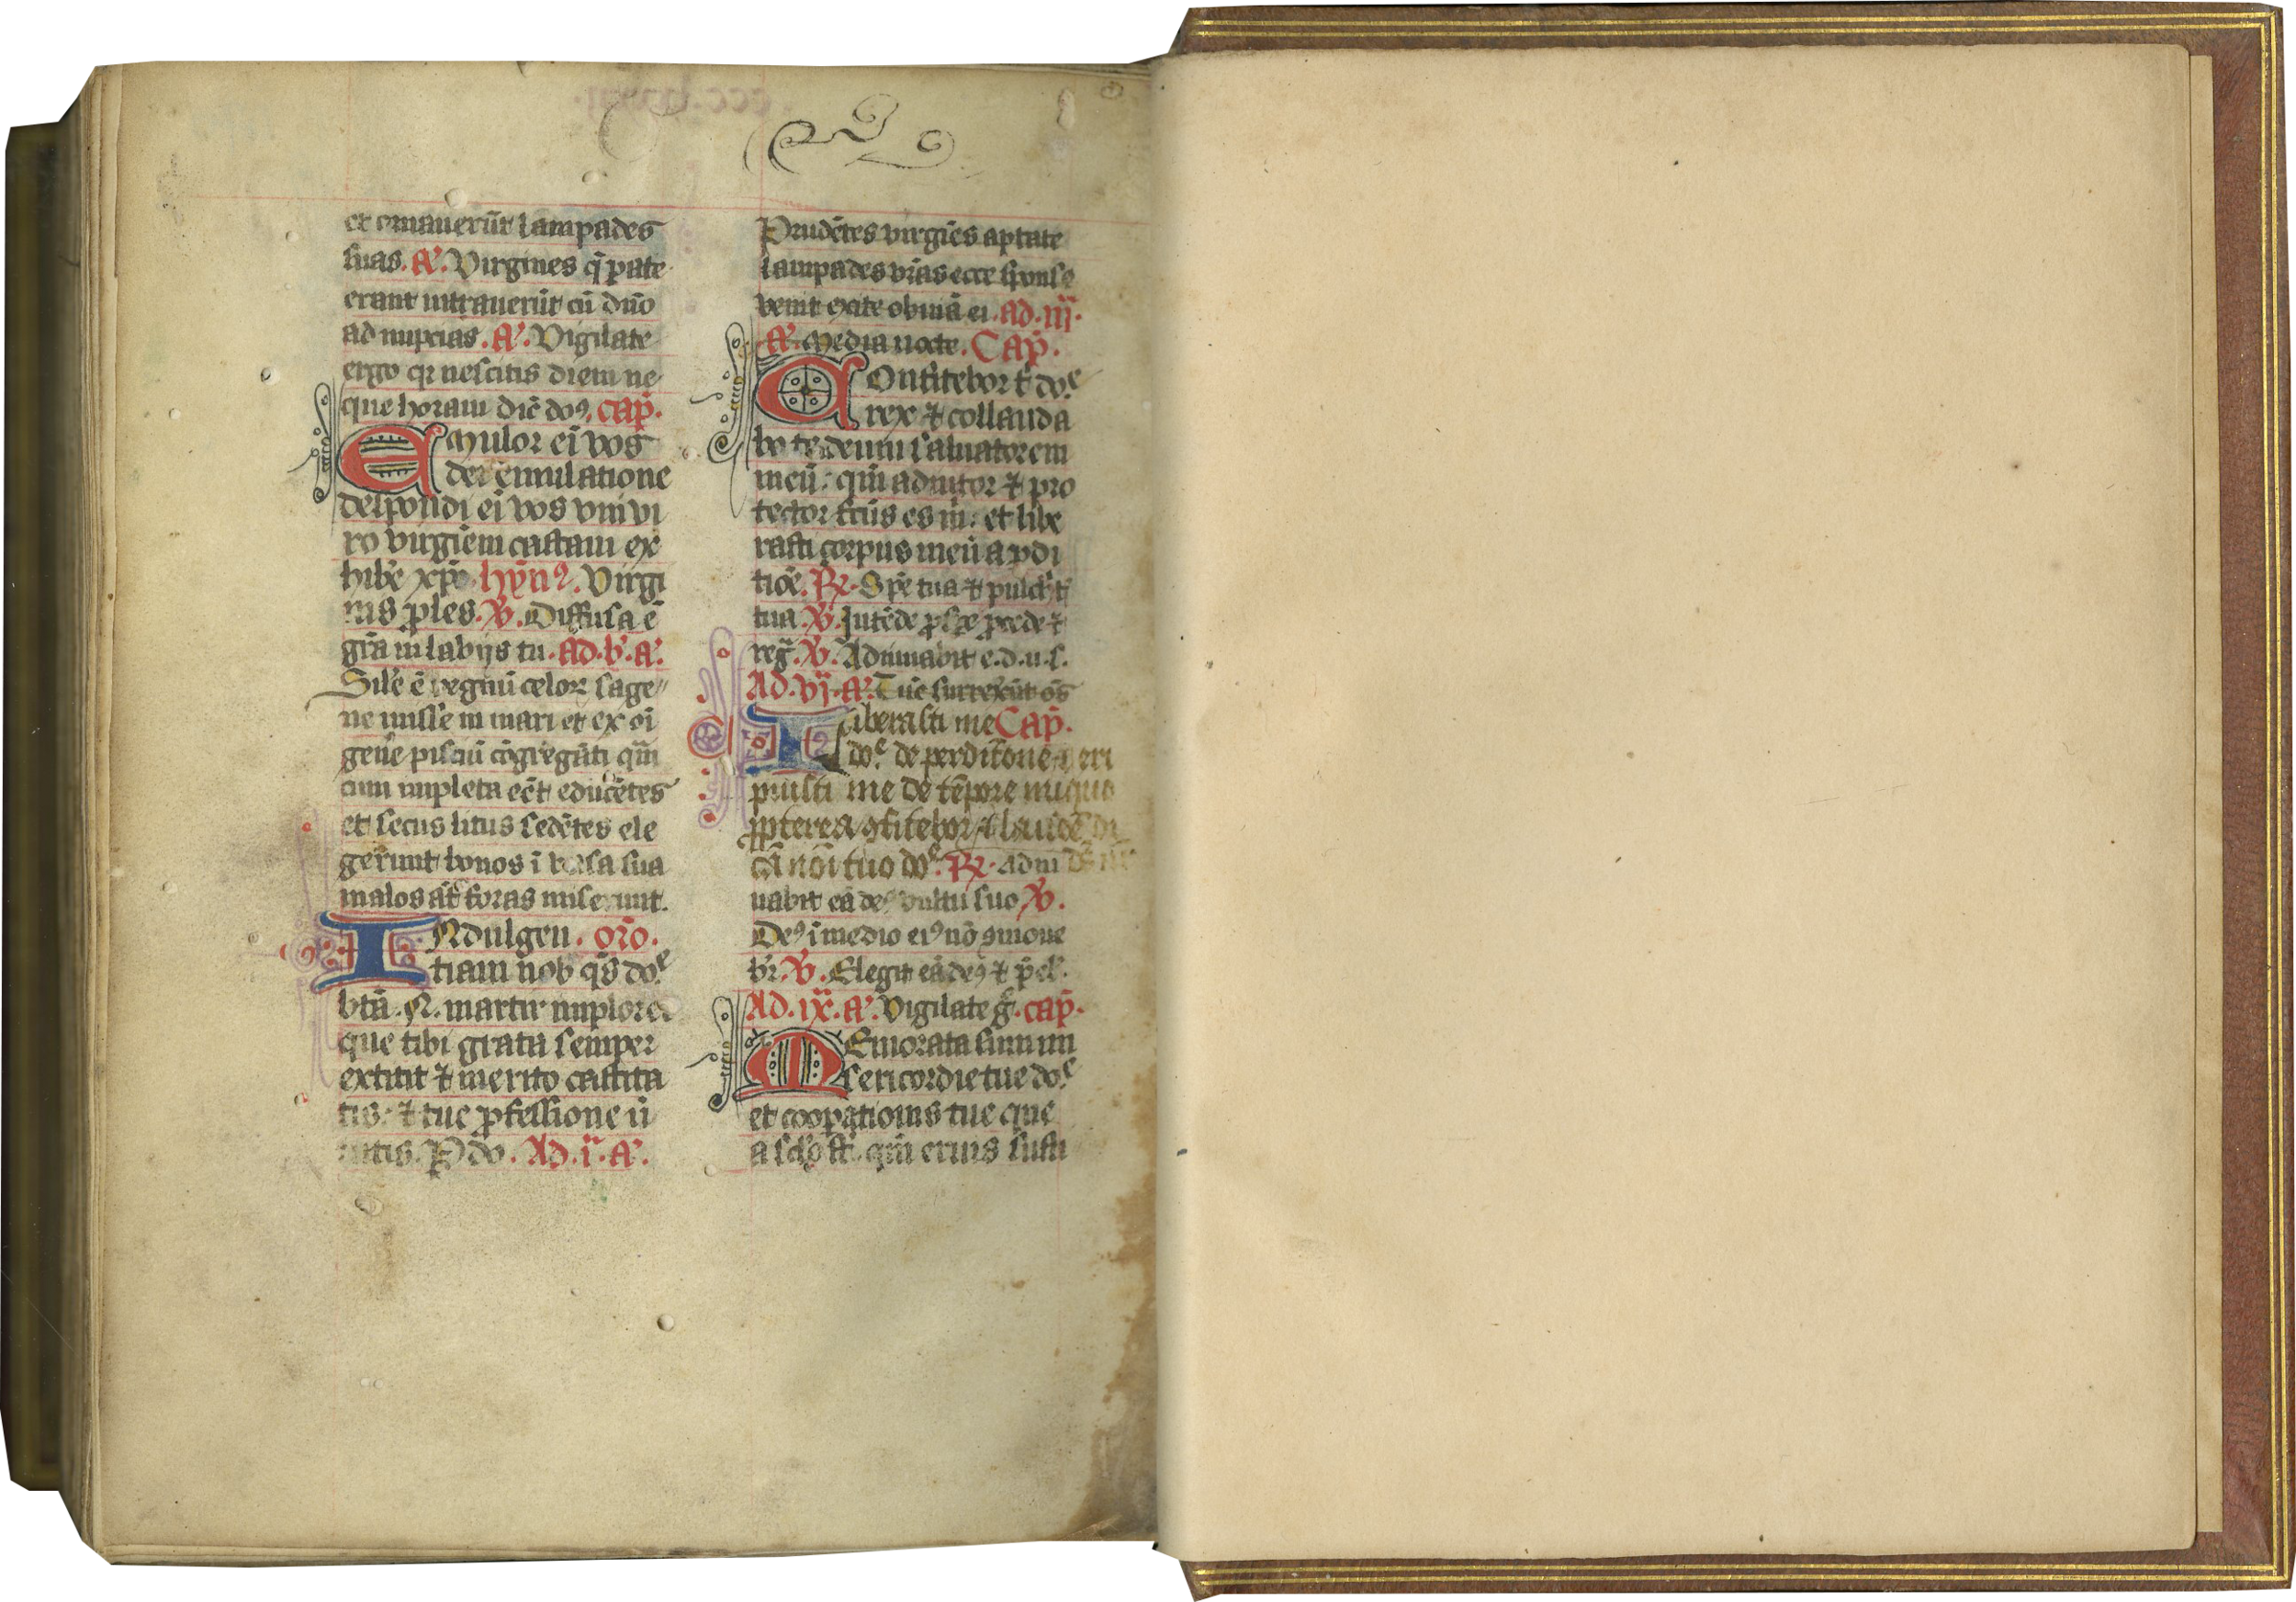 et ornauerūt lampades
suas. A͛. Virgines q̄ ꝑate
erant intrauerūt cū dn̄o
ad nupcias. A͛. Vigilate
ergo qꝛ nescitis diem ne
que horam dic̄ doꝰ. cap̄.
EMulor eī vos
dei emulatione
despondi eī vos vni vi
ro virgīem castam ex
hibe͛ xp̄o. hȳnꝰ. Virgi
nis ꝓles. V͛. Diffusa ē
gr̄a in labijs tu. Ad. b͛. A͛.
Sil'e ē regnū celoꝝ sage
ne misse in mari et ex oī
gen̄e pisciū cōgregāti qm̄
cum impleta eēt educētes
et secus litus sedētes ele
gerunt bonos ī vasa sua
malos at̄ foras miserunt.
INdulgen. or̄o.
tiam nob q̄s do͛
btā. N. martir implore
que tibi grata semper
extitit ⁊ merito castita
tis. ⁊ tue ꝓfessione ū
tutis. P do. Ad. i͛. A͛.
Prudētes virgīes aptate
lampades vr̄as ecce sponse
venit exite obuiā ei. ad. iij.
A͛. Media nocte. Cap̄.
COnfitebor t͛ do͛
rex ⁊ collauda
bo te deum saluatorem
meū. qm̄ adiutor ⁊ pro
tector fcūs es m̄. et libe
rasti corpus meū a ꝑdi
tiōe. ℟. Spē tua ⁊ pulch't͛
tua. V͛. Intēde ꝓspe ꝓcede ⁊
reḡ. V͛. Adiuuabit e. d. u. s.
Ad. vj. A͛. Tūc surrexēūt oēs
LIberasti me Cap̄.
do͛ de perditione ⁊ eri
puisti me de tēpore iniquo
ꝓpterea ꝯfitebor ⁊ laudē di
cā noī tuo do͛. ℟. Adiu
uabit eā deꝰ vultu suo V͛.
Deꝰ ī medio eiꝰ nō ꝯmoue
b͛r. V͛. Elegit eā deꝰ ⁊ p̄el'.
Ad. ix. A͛. Vigilate g͛. cap̄.
MEmorata sum mi
sericordie tue do͛
et cooꝑationis tue que
a sc'lo st̄. qm̄ eruis susti